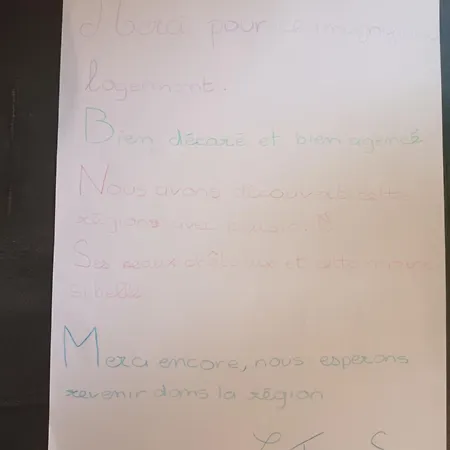 Merci pour
logement.
Bien décoré et bien agencé
Nous avons découvert cette
régions avec plaisir.
Ses eaux et cette
si belle
Merci encore, nous esperons
revenir dans la région